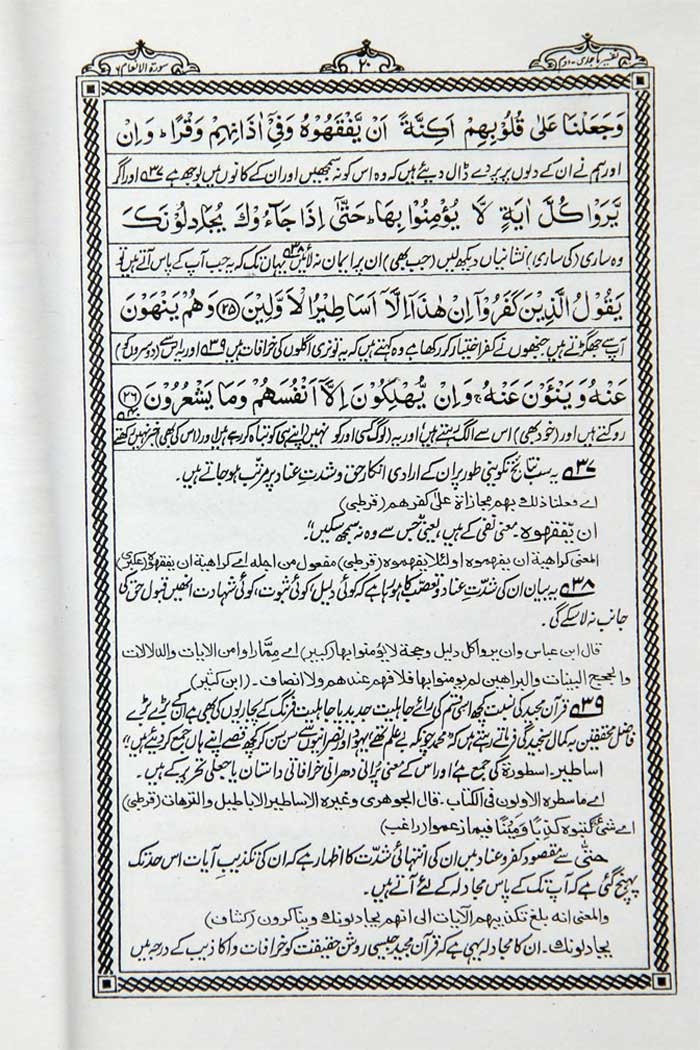 تفسیر ماجدی - دوم
۲۰
سورۃ الانعام ۶
وَجَعَلْنَا عَلٰى قُلُوْبِهِمْ اَكِنَّةً اَنْ يَّفْقَهُوْهُ وَفِيْٓ اٰذَانِهِمْ وَقْرًا ؕ وَاِنْ
اور ہم نے ان کے دلوں پر پردے ڈال دیئے ہیں کہ وہ اس کو نہ سمجھیں اور ان کے کانوں میں بوجھ ہے ۵۳۷ اور اگر
يَّرَوْا كُلَّ اٰيَةٍ لَّا يُؤْمِنُوْا بِهَا ؕ حَتّٰٓى اِذَا جَآءُوْكَ يُجَادِلُوْنَكَ
وہ ساری (کی ساری) نشانیاں دیکھ لیں (جب بھی) ان پر ایمان نہ لائیں ۵۳۸ یہاں تک کہ یہ جب آپ کے پاس آتے ہیں تو
يَقُوْلُ الَّذِيْنَ كَفَرُوْٓا اِنْ هٰذَآ اِلَّآ اَسَاطِيْرُ الْاَوَّلِيْنَ ﴿۲۵﴾ وَهُمْ يَنْهَوْنَ
آپ سے جھگڑتے ہیں جنھوں نے کفر اختیار کر رکھا ہے وہ کہتے ہیں کہ یہ تو نری اگلوں کی خرافات ہیں ۵۳۹ اور یہ اس سے (دوسروں کو)
عَنْهُ وَيَنْـَٔوْنَ عَنْهُ ۚ وَاِنْ يُّهْلِكُوْنَ اِلَّآ اَنْفُسَهُمْ وَمَا يَشْعُرُوْنَ ﴿۲۶﴾
روکتے ہیں اور (خود بھی) اس سے الگ رہتے ہیں اور یہ لوگ کسی اور کو نہیں اپنے ہی کو تباہ کر رہے ہیں اور (اس کی بھی) خبر نہیں رکھتے ۵۴۰
۵۳۷ یہ سب نتائج تکوینی طور پر ان کے ارادی انکار حق و شدت عناد پر مرتب ہو جاتے ہیں۔
اے فعلنا ذلك بهم مجازاة على كفرهم (قرطبی)
ان يفقهوه۔ معنی نفی کے ہیں، یعنی ”جس سے وہ نہ سمجھ سکیں“۔
المعنى كراهية ان يفهموه او لئلا يفهموه (قرطبی) مفعول من اجله اے كراهية ان يفقهوه (عکبری)
۵۳۸ یہ بیان ان کی شدت عناد و تعصب کا ہو رہا ہے کہ کوئی دلیل، کوئی ثبوت، کوئی شہادت انھیں قبول حق کی
جانب نہ لا سکے گی۔
قال ابن عباس وان يروا كل دليل وحجة لا يؤمنوا بها (کبیر) اے مهما راوا من الايات والدلالات
والحجج البينات والبراهين لم يومنوا بها فلا فهم عندهم ولا انصاف۔ (ابن کثیر)
۵۳۹ قرآن مجید کی نسبت کچھ اسی قسم کی رائے جاہلیت جدید یا جاہلیت فرنگ کے پجاریوں کی بھی ہے ان کے بڑے بڑے
فاضل محققین بہ کمال سنجیدگی فرماتے رہتے ہیں کہ ”محمد چونکہ بے علم تھے، یہود اور نصرانیوں سے سن سن کر کچھ قصے اپنے ہاں جمع کر دیئے ہیں“
اساطیر۔ اسطورۃ کی جمع ہے، اور اس کے معنی پرانی دھرانی خرافاتی داستان یا جعلی تحریر کے ہیں۔
اے ما سطره الاولون فى الكتاب۔ قال الجوهرى وغيره الاساطير الاباطيل والترهات (قرطبی)
اے شئ كتبوه كذبا ومينا فيما زعموا (راغب)
حتّٰی سے مقصود کفر و عناد میں ان کی انتہائی شدت کا اظہار ہے کہ ان کی تکذیب آیات اس حد تک
پہنچ گئی ہے کہ آپ تک کے پاس مجادلہ کے لئے آتے ہیں۔
والمعنى انه بلغ تكذيبهم الآيات الى انهم يجادلونك ويناكرونك (کشاف)
يجادلونك۔ ان کا مجادلہ یہی ہے کہ قرآن مجید جیسی روشن حقیقت کو خرافات و اکاذیب کے درجہ میں